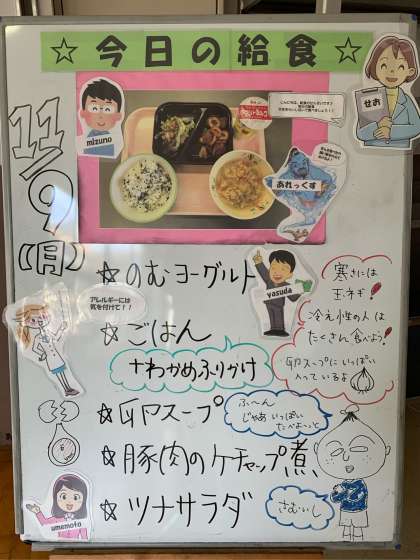 ☆今日の給食☆
せお
mizuno
あれっくす
11/9
(月)
☆のむヨーグルト
yasuda
寒さには
玉ネギ!
冷え性の人は
たくさん食べよう!
卵スープにいっぱい
入っているよ
アレルギーには
気を付けて!!
☆ごはん
+わかめふりかけ
☆卵スープ
ふ〜ん
じゃあいっぱい
たべよーっと
☆豚肉のケチャップ煮
☆ツナサラダ
さむいし
umemoto